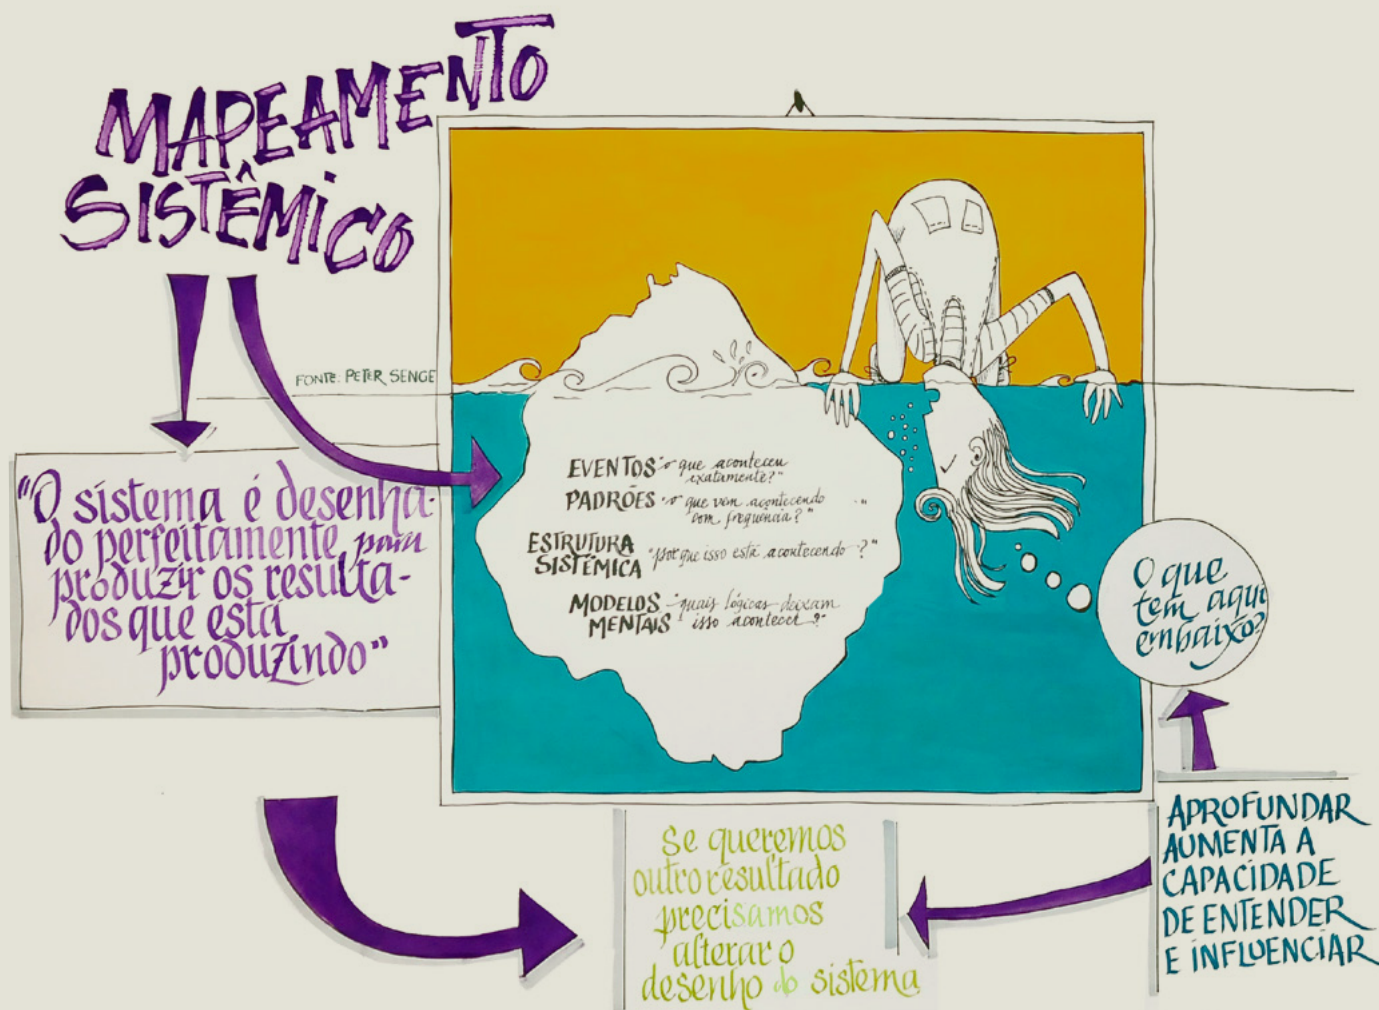 MAPEAMENTO
SISTÊMICO
FONTE: PETER SENGE
"O sistema é desenha-
do perfeitamente para
produzir os resulta-
dos que está
produzindo"
EVENTOS "o que aconteceu
exatamente?"
PADRÕES "o que vem acontecendo
com frequência?"
ESTRUTURA
SISTÊMICA "por que isso está acontecendo?"
MODELOS "quais lógicas deixam
MENTAIS isso acontecer?"
O que
tem aqui
embaixo?
APROFUNDAR
AUMENTA A
CAPACIDADE
DE ENTENDER
E INFLUENCIAR
Se queremos
outro resultado
precisamos
alterar o
desenho do sistema